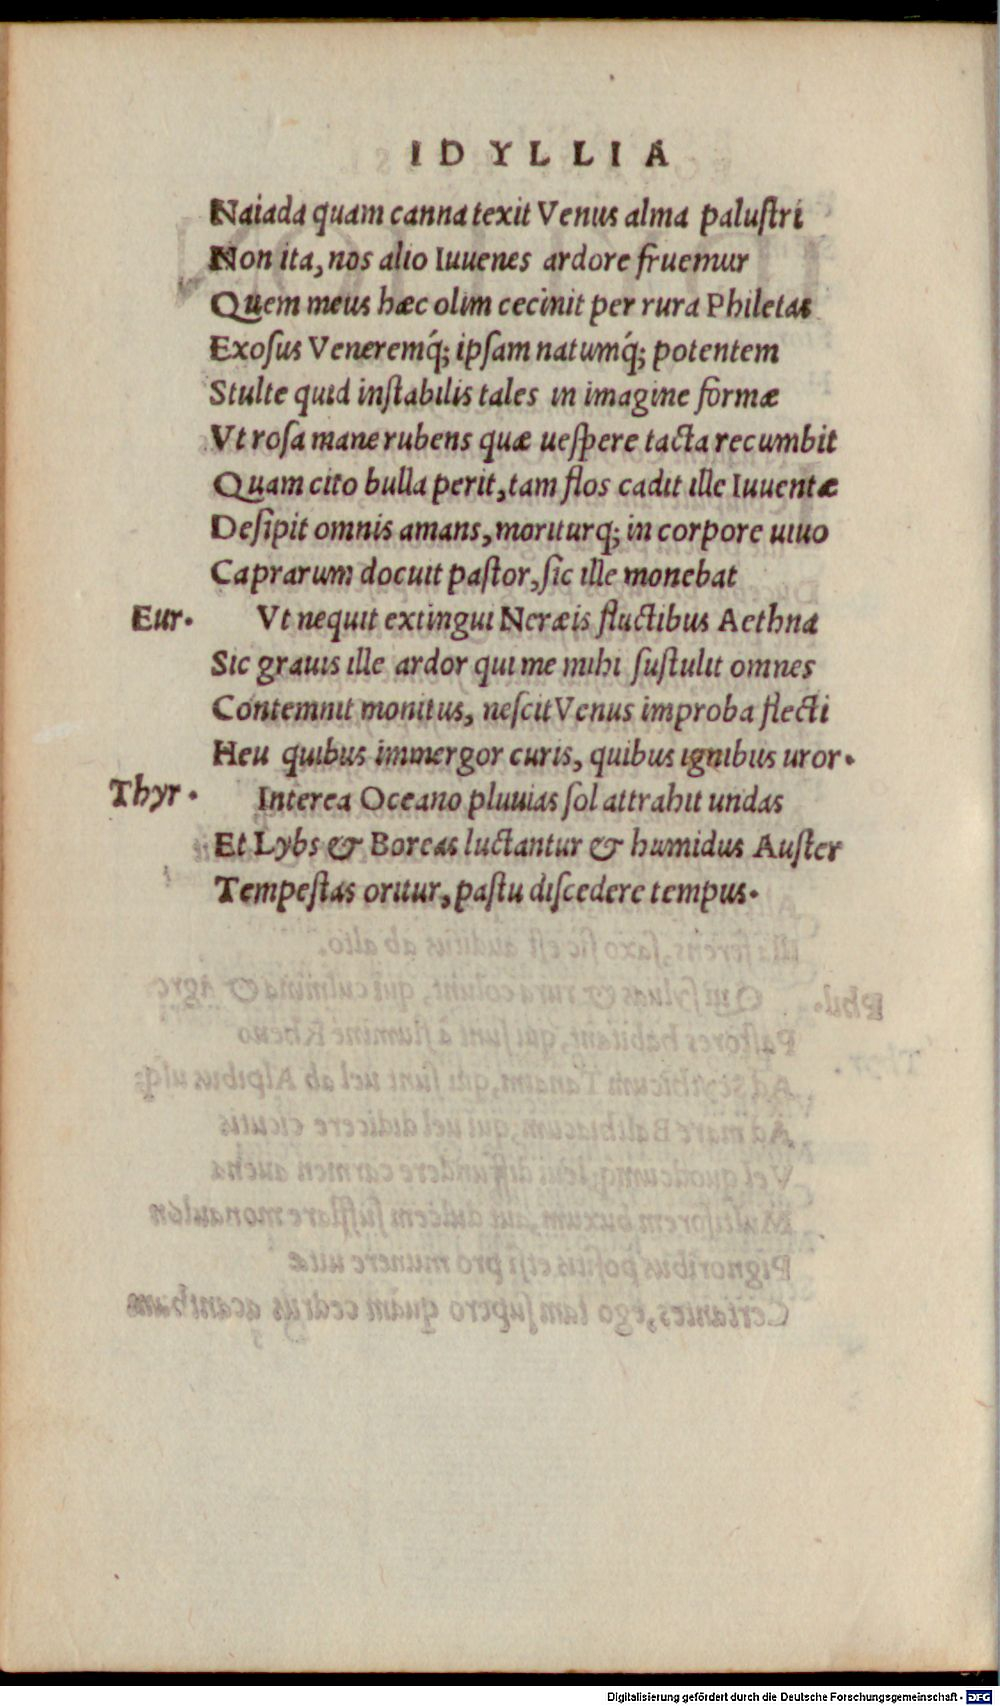 IDYLLIA
Naiada quam canna texit Venus alma palustri
Non ita, nos alio Iuuenes ardore fruemur
Quem meus hæc olim cecinit per rura Philetas
Exosus Veneremq́; ipsam natumq́; potentem
Stulte quid instabilis tales in imagine formæ
Vt rosa mane rubens quæ uespere tacta recumbit
Quam cito bulla perit, tam flos cadit ille Iuuentæ
Desipit omnis amans, moriturq; in corpore uiuo
Caprarum docuit pastor, sic ille monebat
Eur. Vt nequit extingui Neræis fluctibus Aethna
Sic grauis ille ardor qui me mihi sustulit omnes
Contemnit monitus, nescit Venus improba flecti
Heu quibus immergor curis, quibus ignibus uror.
Thyr. Interea Oceano pluuias sol attrahit undas
Et Lybs & Boreas luctantur & humidus Auster
Tempestas oritur, pastu discedere tempus.
Digitalisierung gefördert durch die Deutsche Forschungsgemeinschaft - DFG